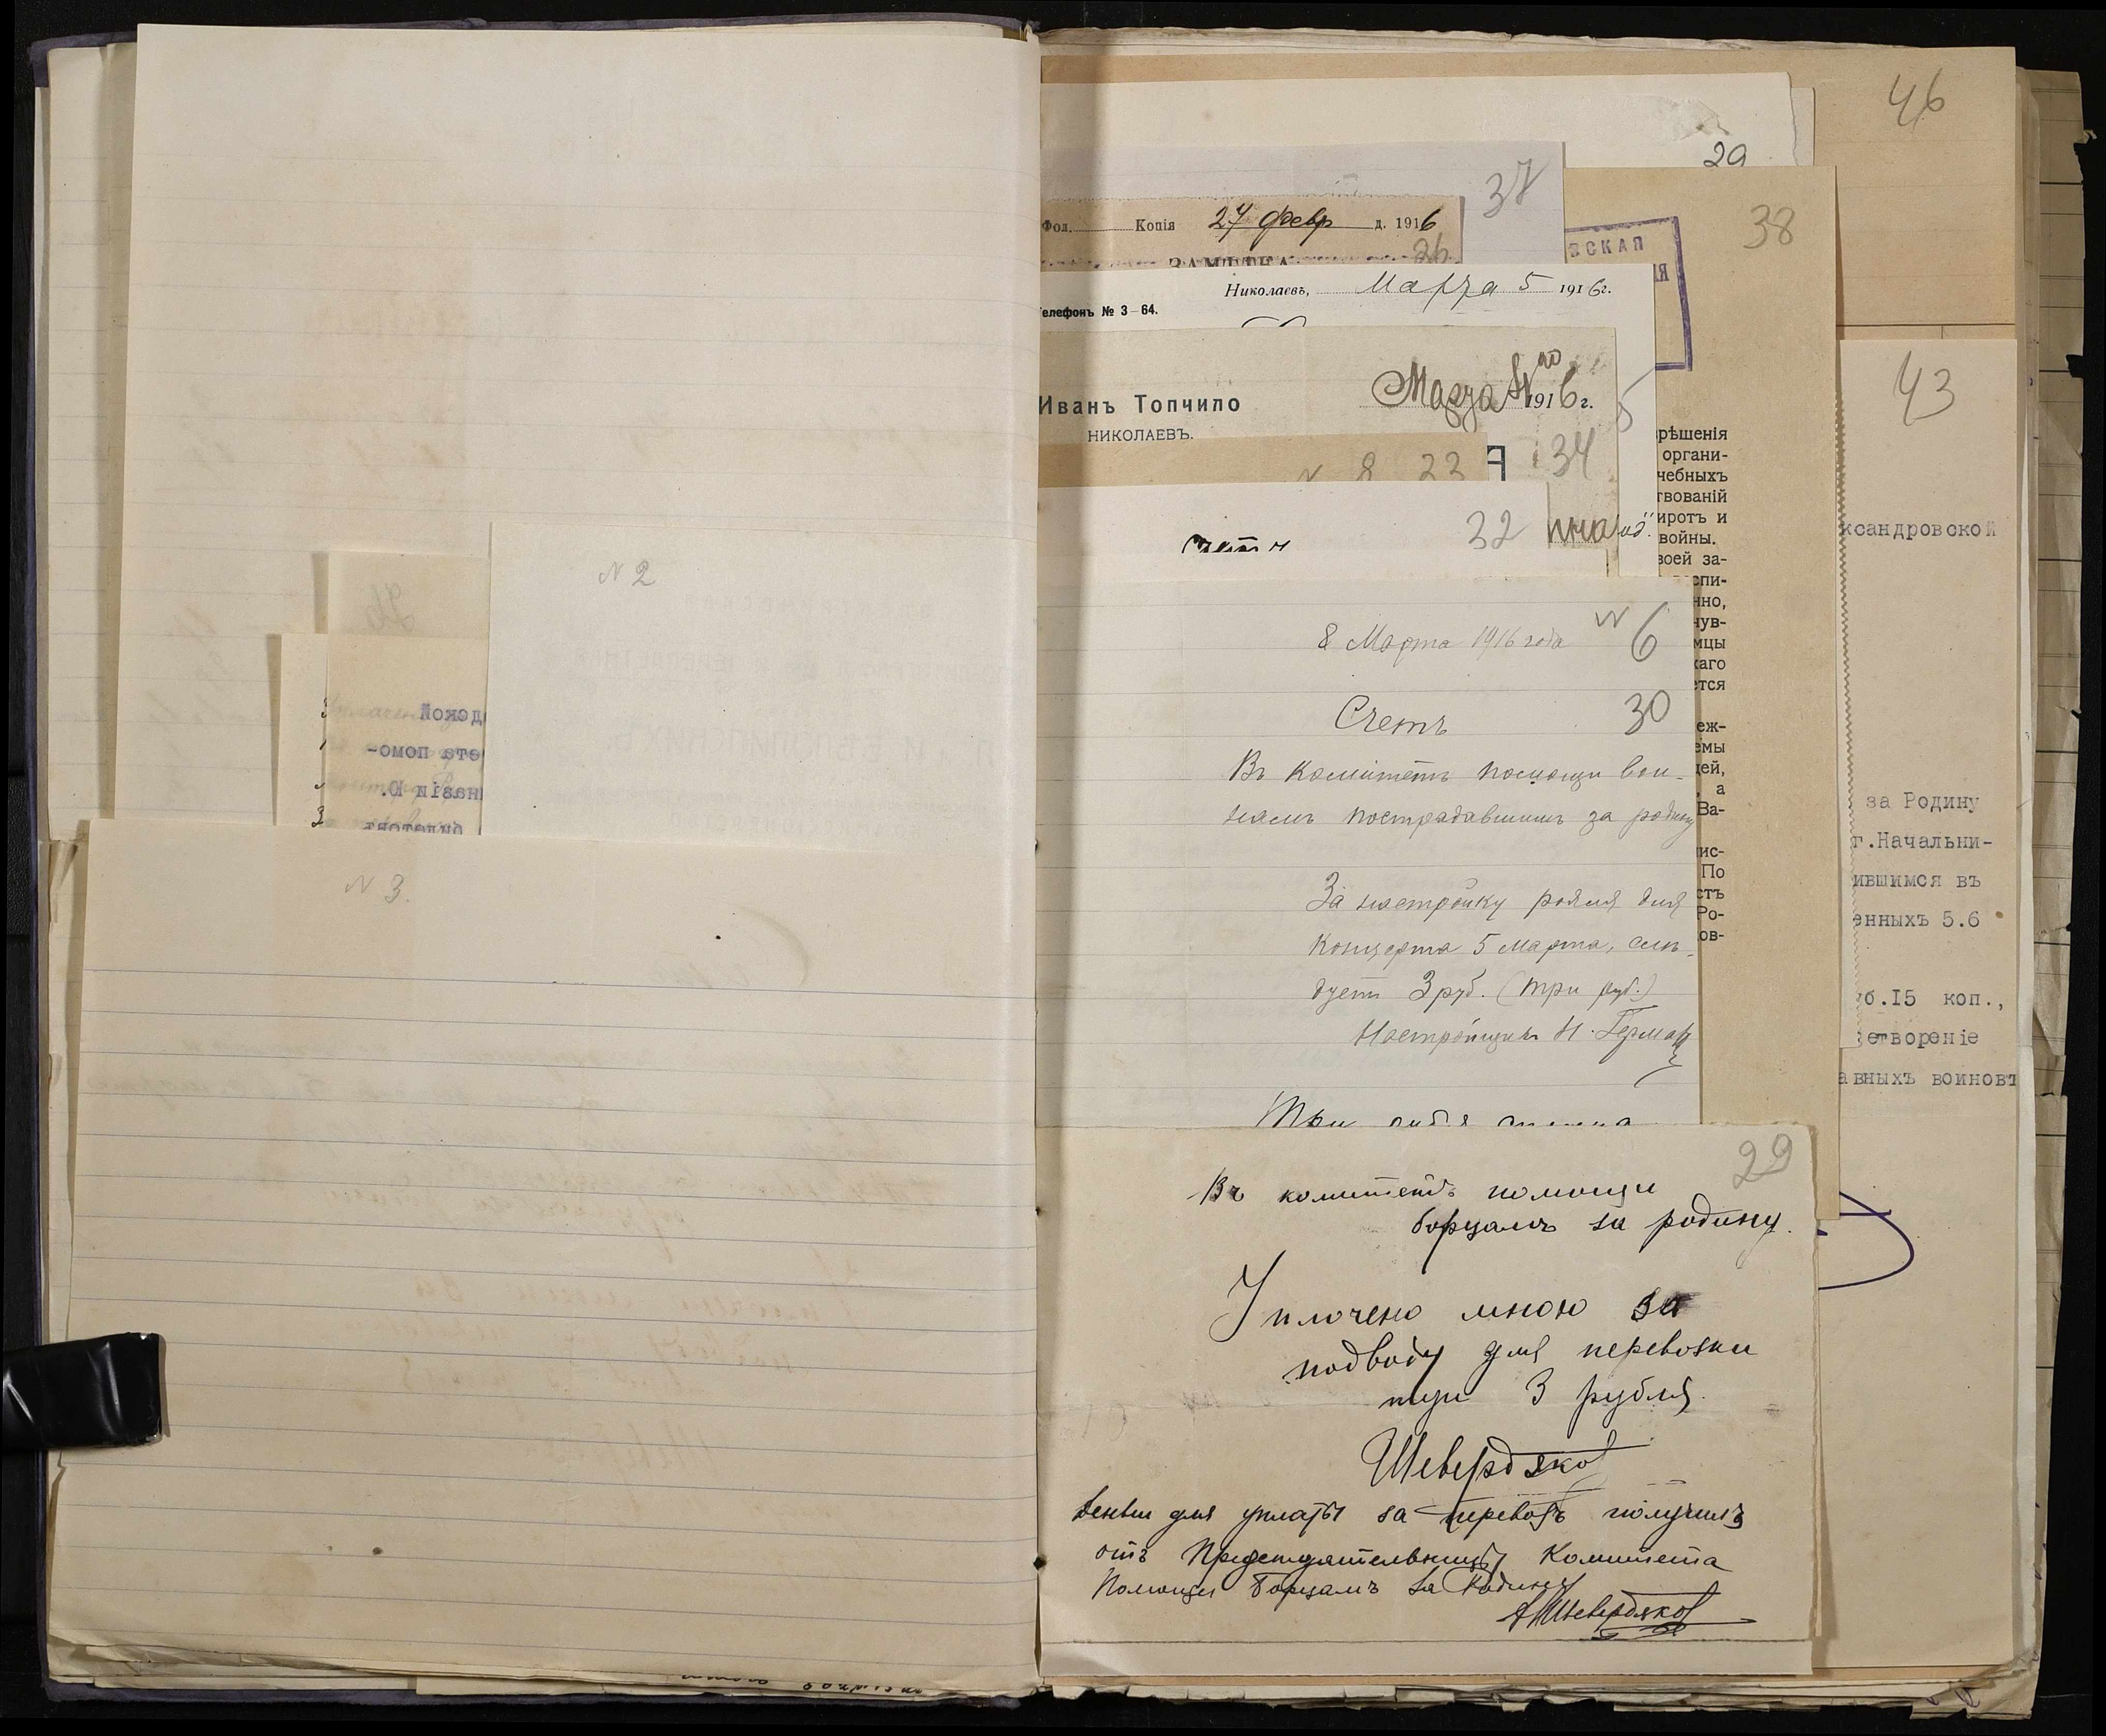 N 2
дской
ета помо-
назіи Ю.
билетовъ
N 3.
46
29
37
Фол. Копія 27 февр д. 1916
26
ЗАМѢТКА
38
ВСКАП
Николаевъ, Марта 5 1916 г.
Телефонъ № 3-64.
Марта 4го 1916 г.
Иванъ Топчило
НИКОЛАЕВЪ.
34
N 8 33
32
Счетъ
43
рѣшенія
органи-
чебныхъ
твованій
иротъ и
войны.
воей за-
спи-
нно,
чув-
мцы
каго
ется
еж-
емы
цей,
а
Ва-
ис-
По
сть
Ро-
ов-
ксандровской
за Родину
г.Начальни-
ившимся въ
енныхъ 5.6
уб.15 коп.,
етвореніе
авныхъ воиновъ
8 Марта 1916 года N 6
Счетъ 30
Въ Комитетъ помощи вои-
намъ пострадавшимъ за родину
За настройку рояля для
Концерта 5 Марта, слѣ-
дуетъ 3 руб. (три руб.)
Настройщикъ Н. Герман
Три рубля
29
Въ комитетъ помощи
борцамъ за родину.
Уплочено мною за
подводу для перевозки
туи 3 рубля.
Шевердяков
Деньги для уплаты за перевозъ получилъ
отъ Предсѣдательницы Комитета
Помощи Борцамъ за Родину
А Шевердяков